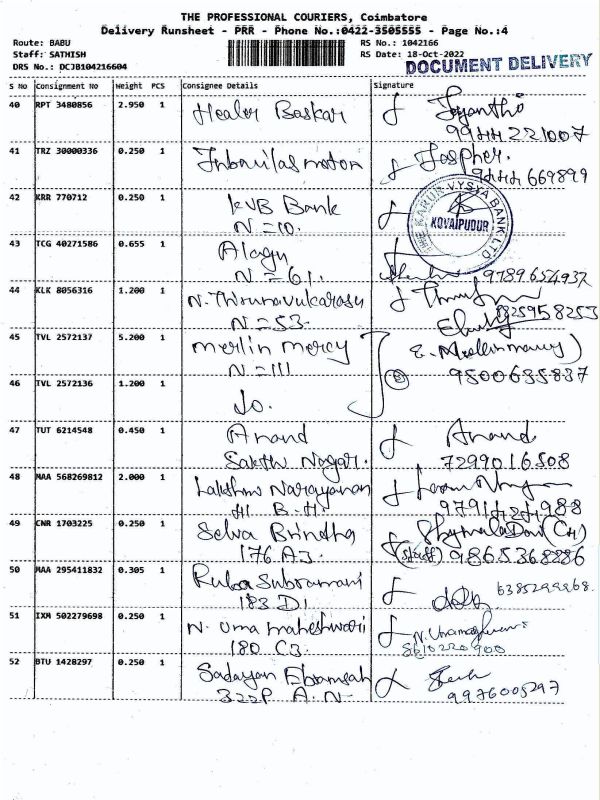 THE PROFESSIONAL COURIERS, Coimbatore
Delivery Runsheet - PRR - Phone No.:0422-3505555 - Page No.:4
Route: BABU RS No.: 1042166
Staff: SATHISH RS Date: 18-Oct-2022
DRS No.: DCJB104216604 DOCUMENT DELIVERY
S No Consignment No Weight PCS Consignee Details Signature
40 RPT 3480856 2.950 1 Healer Baskar Jeyanthi
221007
41 TRZ 30000336 0.250 1 Jaspher.
669899
42 KRR 770712 0.250 1 KVB Bank
N = 10.
THE KARUR VYSYA BANK LTD
KOVAIPUDUR
43 TCG 40271586 0.655 1 Alagu
N = 61. 9789654937
44 KLK 8056316 1.200 1 N. Thirunavukarasu
N = 53.
45 TVL 2572137 5.200 1 Merlin mercy
N = 111 9500635837
46 TVL 2572136 1.200 1 Do.
47 TUT 6214548 0.450 1 Anand Anand
Sakthi Nagar. 7299016508
48 MAA 568269812 2.000 1 Lakshmi Narayanan
H1 B.H.
49 CNR 1703225 0.250 1 Selva Brindha
176 A3. (staff) 9865368286
50 MAA 295411832 0.305 1 Ruba Subramani
183 D1
51 IXM 502279698 0.250 1 N. Uma maheshwari
180 C3. 8610220900
52 BTU 1428297 0.250 1 Sadayan
322P A.N. 9976005297